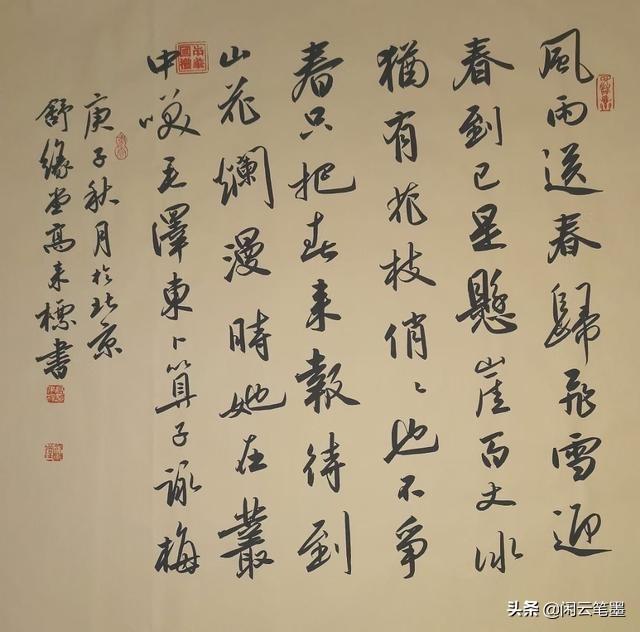 風雨送春歸飛雪迎
春到已是懸崖百丈冰
猶有花枝俏〻也不爭
春只把春來報待到
山花爛漫時她在叢
中笑毛澤東卜算子詠梅
庚子秋月於北京
舒緣堂高來標書
头条 @闲云笔墨